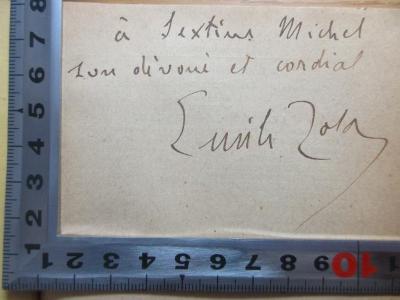 à Sextius Michel
son dévoué et cordial
Emile Zola
8
7
6
5
4
3
2
1
4 3 2 1 1 2 3 4 5 6 7 8 9 10